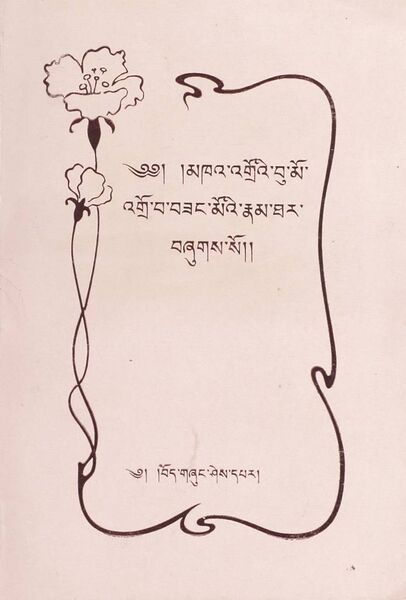 ༄༅། །མཁའ་འགྲོའི་བུ་མོ་
འགྲོ་བ་བཟང་མོའི་རྣམ་ཐར་
བཞུགས་སོ།།
༄། །བོད་གཞུང་ཤེས་དཔར།